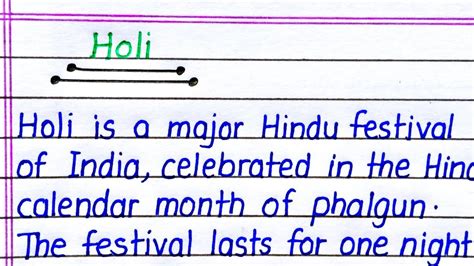 Holi
Holi is a major Hindu festival
of India, celebrated in the Hind
calendar month of phalgun.
The festival lasts for one night